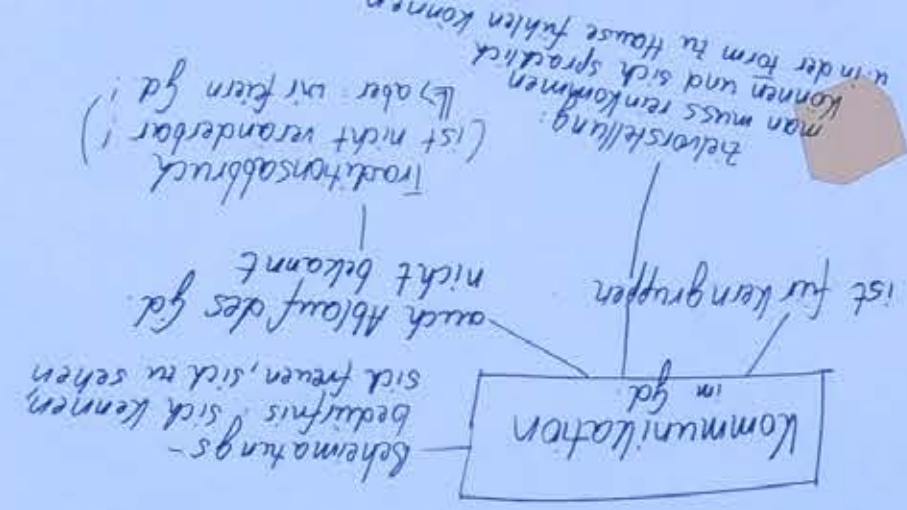 Kommunikation
im Gd.
Beheimatungs-
bedürfnis: sich kennen,
sich freuen, sich zu sehen
auch Ablauf des Gd.
nicht bekannt
Traditionsabbruch
(ist nicht veränderbar!)
↳ aber: wir feiern Gd!
ist für Kerngruppen
Zielvorstellung:
man muss reinkommen
können und sich sprachlich
u. in der Form zu Hause fühlen können